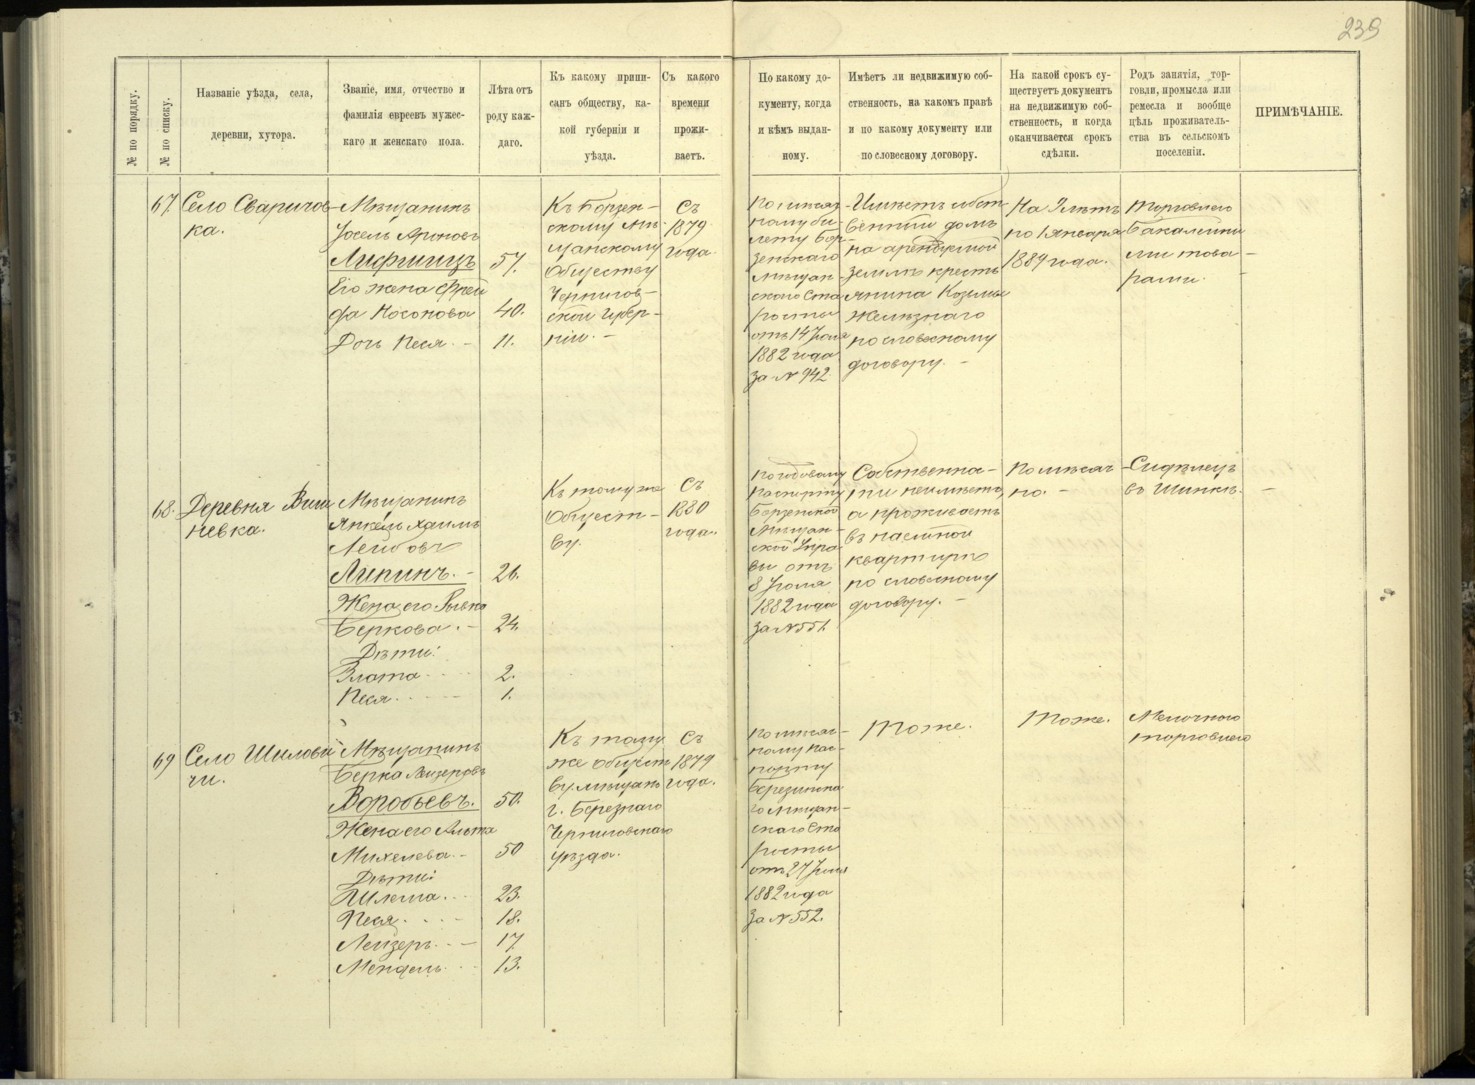 239
№ по порядку.
№ по списку.
Названіе уѣзда, села,
деревни, хутора.
Званіе, имя, отчество и
фамилія евреевъ мужес-
каго и женскаго пола.
Лѣта отъ
роду каж-
даго.
Къ какому припи-
санъ обществу, ка-
кой губерніи и
уѣзда.
Съ какого
времени
прожи-
ваетъ.
По какому до-
кументу, когда
и кѣмъ выдан-
ному.
Имѣетъ ли недвижимую соб-
ственность, на какомъ правѣ
и по какому документу или
по словесному договору.
На какой срокъ су-
ществуетъ документъ
на недвижимую соб-
ственность, и когда
оканчивается срокъ
сдѣлки.
Родъ занятія, тор-
говли, промысла или
ремесла и вообще
цѣль проживатель-
ства въ сельском
поселеніи.
ПРИМѢЧАНІЕ.
67.
Село Сваричов-
ка.
Мѣщанинъ
Іосель Ароновъ
Лифшицъ
Его жена Фрей
да Носонова
Дочь Песя. -
57.
40.
11.
Къ Борзен-
скому Мѣ-
щанскому
Обществу
Чернигов-
ской Губер-
ніи. -
Съ
1879
года.
По мѣсяч-
ному би-
лету Бор-
зенскаго
Мѣщан-
скаго Ста
росты
отъ 14 Іюля
1882 года
за № 942.
Имѣетъ собст
венный домъ
на арендуемой
землѣ кресть
янина Козьмы
Желѣзнаго
по словесному
договору. -
На 7 лѣтъ
по 1 Января
1889 года.
Торговлею
бакалейны
ми това-
рами.
68.
Деревня Виш
невка.
Мѣщанинъ
Янкель Хаимъ
Лейбовъ
Липинъ. -
Жена его Рывка
Беркова. -
Дѣти:
Злата
Песя
26.
24.
2.
1.
Къ тому же
Общест-
ву.
Съ
1880
года.
По годовому
паспорту
Борзенской
Мѣщан-
ской Упра
вы отъ
8 Іюля
1882 года
за № 551.
Собственнос-
ти неимѣетъ,
а проживаетъ
въ наемной
квартирѣ
по словесному
договору. -
По мѣсяч
но. -
Сидѣлецъ
въ Шинкѣ. -
69
Село Шилови
чи.
Мѣщанинъ
Берка Лейзеровъ
Воробьевъ.
Жена его Злата
Михелева. -
Дѣти:
Шлема
Песя
Лейзеръ
Мендель
50.
50
23.
18.
17.
13.
Къ тому
же общест
ву мѣщанъ
г. Березнаго
Черниговскаго
уѣзда.
Съ
1879
года.
По мѣсяч-
ному пас-
порту
Березинска
го Мѣщан-
скаго Ста
росты
отъ 27 Іюня
1882 года
за № 552.
Тоже.
Тоже.
Мелочною
торговлею